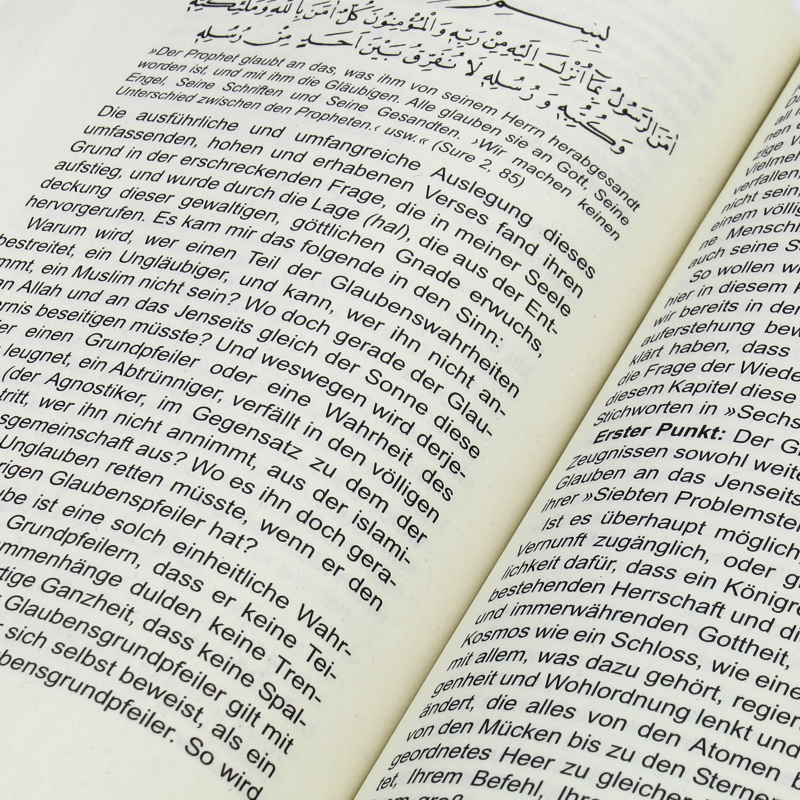 بِسْمِ
اٰمَنَ الرَّسُولُ بِمَٓا اُنْزِلَ اِلَيْهِ مِنْ رَبِّهِ وَالْمُؤْمِنُونَ كُلٌّ اٰمَنَ بِاللّٰهِ وَمَلٰٓئِكَتِهِ
وَكُتُبِهِ وَرُسُلِهِ لَا نُفَرِّقُ بَيْنَ اَحَدٍ مِنْ رُسُلِهِ
»Der Prophet glaubt an das, was ihm von seinem Herrn herabgesandt
worden ist, und mit ihm die Gläubigen. Alle glauben sie an Gott, Seine
Engel, Seine Schriften und Seine Gesandten. ›Wir machen keinen
Unterschied zwischen den Propheten.‹ usw.« (Sure 2, 85)
Die ausführliche und umfangreiche Auslegung dieses
umfassenden, hohen und erhabenen Verses fand ihren
Grund in der erschreckenden Frage, die in meiner Seele
aufstieg, und wurde durch die Lage (hal), die aus der Ent-
deckung dieser gewaltigen, göttlichen Gnade erwuchs,
hervorgerufen. Es kam mir das folgende in den Sinn:
Warum wird, wer einen Teil der Glaubenswahrheiten
bestreitet, ein Ungläubiger, und kann, wer ihn nicht an-
mmt, ein Muslim nicht sein? Wo doch gerade der Glau-
an Allah und an das Jenseits gleich der Sonne diese
ernis beseitigen müsste? Und weswegen wird derje-
er einen Grundpfeiler oder eine Wahrheit des
leugnet, ein Abtrünniger, verfällt in den völligen
(der Agnostiker, im Gegensatz zu dem der
tritt, wer ihn nicht annimmt, aus der islami-
sgemeinschaft aus? Wo es ihn doch gera-
Unglauben retten müsste, wenn er den
rigen Glaubenspfeiler hat?
ube ist eine solch einheitliche Wahr-
Grundpfeilern, dass er keine Tei-
ammenhänge dulden keine Tren-
rtige Ganzheit, dass keine Spal-
Glaubensgrundpfeiler gilt mit
r sich selbst beweist, als ein
ubensgrundpfeiler. So wird
all
nen v
zige v
Vielmel
verfallen,
nicht sein,
einem völlig
ne Menschl
auch seine S
So wollen wi
hier in diesem K
wir bereits in der
auferstehung bew
klärt haben, dass
die Frage der Wiede
diesem Kapitel diese
Stichworten in »Sechs
Erster Punkt: Der Gl
Zeugnissen sowohl weite
Glauben an das Jenseits
ihrer »Siebten Problemste
Ist es überhaupt möglich,
Vernunft zugänglich, oder g
lichkeit dafür, dass ein Königre
bestehenden Herrschaft und di
und immerwährenden Gottheit,
Kosmos wie ein Schloss, wie eine
mit allem, was dazu gehört, regier
genheit und Wohlordnung lenkt und
ändert, die alles von den Atomen b
von den Mücken bis zu den Sterner
geordnetes Heer zu gleicher
tet, Ihrem Befehl, Ihre